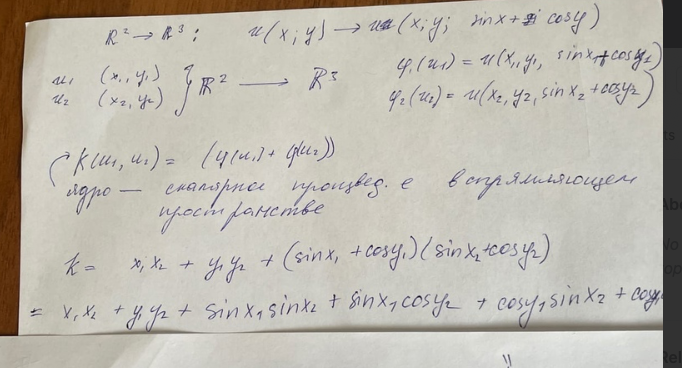 ℝ² → ℝ³ : u(x; y) → u(x; y; sinx + cosy)
φ₁(u₁) = u(x₁, y₁, sinx₁ + cosy₁)
u₁ (x₁, y₁) } ℝ² → ℝ³
u₂ (x₂, y₂)
φ₂(u₂) = u(x₂, y₂, sinx₂ + cosy₂)
K(u₁, u₂) = (φ(u₁) + φ(u₂))
ядро — скалярное произвед. в спрямляющем
пространстве
k = x₁x₂ + y₁y₂ + (sinx₁ + cosy₁)(sinx₂ + cosy₂)
= x₁x₂ + y₁y₂ + sinx₁sinx₂ + sinx₁cosy₂ + cosy₁sinx₂ + cosy₁